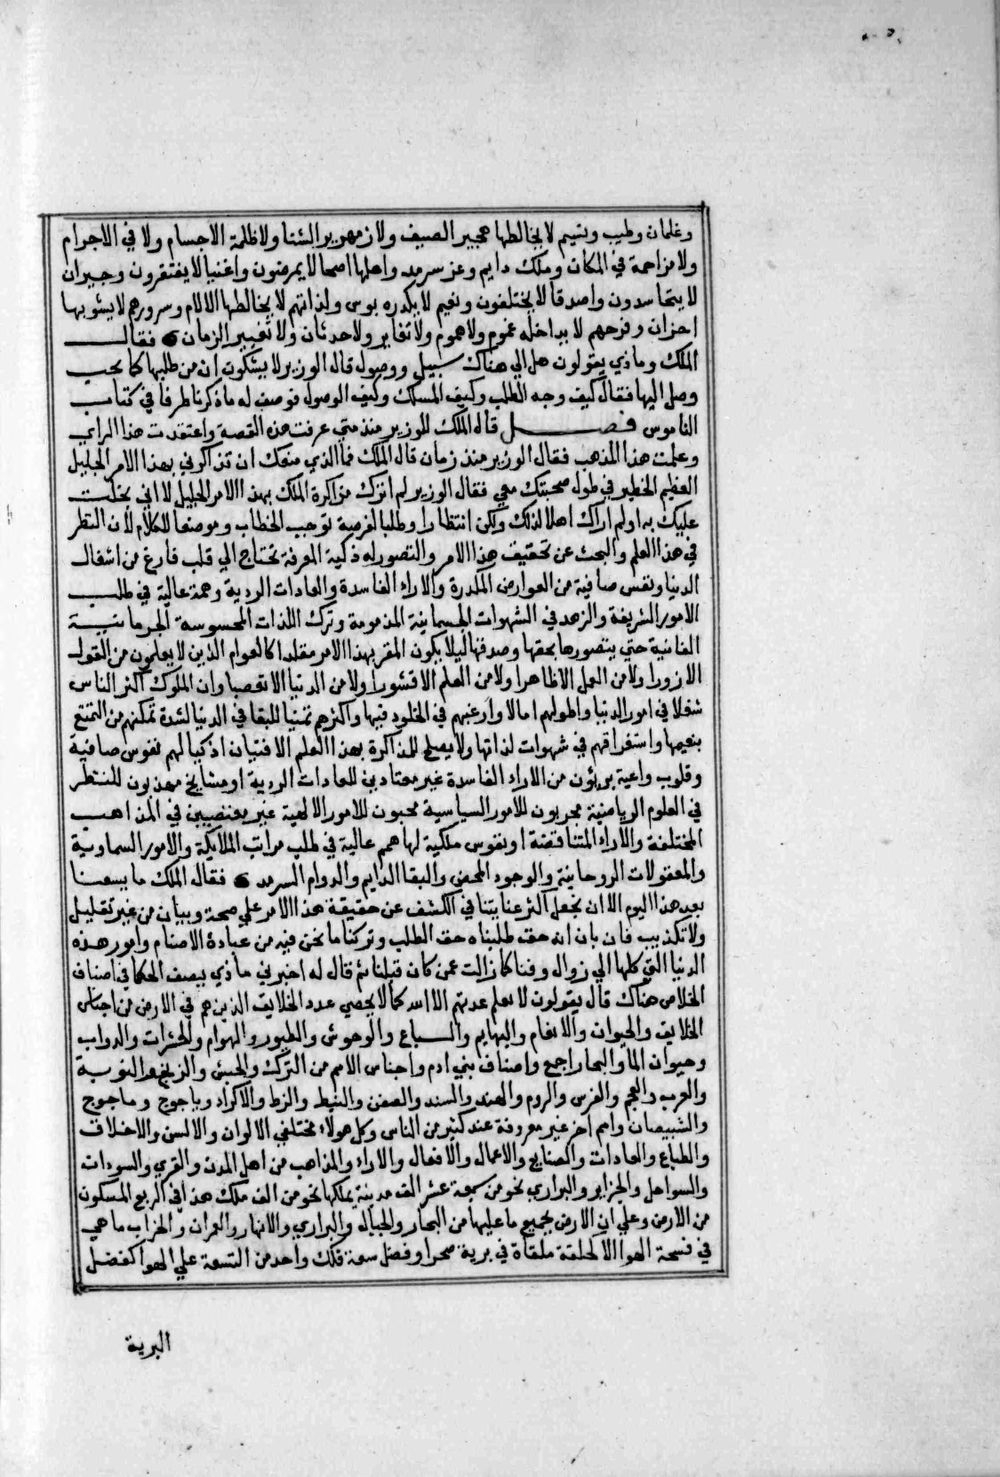 وغلمان وطيب ونسيم لا يخالطها هجير الصيف ولا زمهرير الشتا ولا ظلمة الاجسام ولا في الاجرام
ولا مزاحمة في المكان وملك دايم وعز سرمد واهلها اصحا لا يمرضون واغنيا لا يفتقرون وجيران
لا يتحاسدون واصدقا لا يختلفون ونعيم لا يكدره بوس ولذاتهم لا يخالطها الالام وسرورهم لا يشوبها
احزان وفرحهم لا يداخله غموم ولا هموم ولا تغاير ولا حدثان ولا تغيير الزمان ه فقال
الملك وما ذي يقولون هل الي هناك سبيل ووصول قال الوزير لا يشكون ان من طلبها كما يجب
وصل اليها فقال كيف وجه الطلب وكيف المسلك وكيف الوصول فوصف له ما ذكرنا طرفا في كتاب
الناموس فصل قال الملك للوزير منذ متي عرفت هذه القصة واعتقدت هذا الراي
وعلمت هذا المذهب فقال الوزير منذ زمان قال الملك فما الذي منعك ان تذاكرني بهذا الامر الجليل
العظيم الخطير في طول صحبتك معي فقال الوزير لم اترك مذاكرة الملك بهذا الامر الجليل لا اني بخلت
عليك به او لم اراك اهلا لذلك ولكن انتظارا وطلبا لفرصة توجب الخطاب وموضعا للكلام لان النظر
في هذا العلم والبحث عن تحقيق هذا الامر والتصور له ذكية المعرفة تحتاج الي قلب فارغ من اشغال
الدنيا ونفس صافية من العوارض المكدرة والاراء الفاسدة والعادات الردية وهمة عالية في طلب
الامور الشريفة والزهد في الشهوات الجسمانية المذمومة وترك اللذات المحسوسة الجرمانية
الفانية حتي يتصورها بحقها وصدقها ليلا يكون المقر بهذا الامر مقلدا كالعوام الذين لا يعلمون من القول
الا زورا ولا من العمل الا ظاهرا ولا من العلم الا قشورا ولا من الدنيا الا تعصبا وان الملوك اكثر الناس
شغلا في امور الدنيا واطولهم امالا وارغبهم في الخلود فيها واكثرهم تمنيا للبقا في الدنيا لشدة تمكنهم من التمتع
بنعيمها واستغراقهم في شهوات لذاتها ولا يصلح للمذاكرة بهذا العلم الا فتيان اذكيا لهم نفوس صافية
وقلوب واعية بريون من الاراء الفاسدة غير معتادين للعادات الردية او مشايخ مهذبون للنظر
في العلوم الرياضية مجربون للامور السياسية محبون للامور الالهية غير متعصبين في المذاهب
المختلفة والاراء المتناقضة او نفوس ملكية لها همم عالية في طلب مراتب الملايكة والامور السماوية
والمعقولات الروحانية والوجود المحض والبقا الدايم والدوام السرمد ه فقال الملك ما يسعنا
بعد هذا اليوم الا ان نجعل اكثر عنايتنا في الكشف عن حقيقة هذا الامر علي صحة وبيان من غير تقليل
ولا تكذيب فان بان انه حق طلبناه حق الطلب وتركنا ما نحن فيه من عبادة الاصنام وامور هذه
الدنيا التي كلها الي زوال وفنا كما زالت عمن كان قبلنا ثم قال له اخبرني ما ذي يصف الحكما في اصناف
الخلايق هناك قال يقولون لا يعلم عدتهم الا الله كما لا يحصي عدد الخلايق الذين هم في الارض من اجناس
الخلايق والحيوان والانعام والبهايم والسباع والوحوش والطيور والهوام والحشرات والدواب
وحيوان الماء والبحار اجمع واصناف بني ادم واجناس الامم من الترك والحبش والزنج والنوبة
والعرب والعجم والفرس والروم والهند والسند والصين والنبط والزط والاكراد وياجوج وماجوج
وامم اخر غير معروفة عند كثير من الناس وكل هولاء مختلفي الالوان والالسن والاخلاق
والطباع والعادات والصنايع والاعمال والافعال والاراء والمذاهب من اهل المدن والقري والسودات
والسواحل والجزاير والبراري نحو من سبعة عشر الف مدينة يملكها نحو من الف ملك هذا في الربع المسكون
من الارض وعلي ان الارض بجميع ما عليها من البحار والجبال والبراري والانهار والعمران والخراب ما هي
في فسحة الهوا الا كحلقة ملقاة في برية صحرا وفضل سعة فلك واحد من التسعة علي الهوا كفضل
البرية